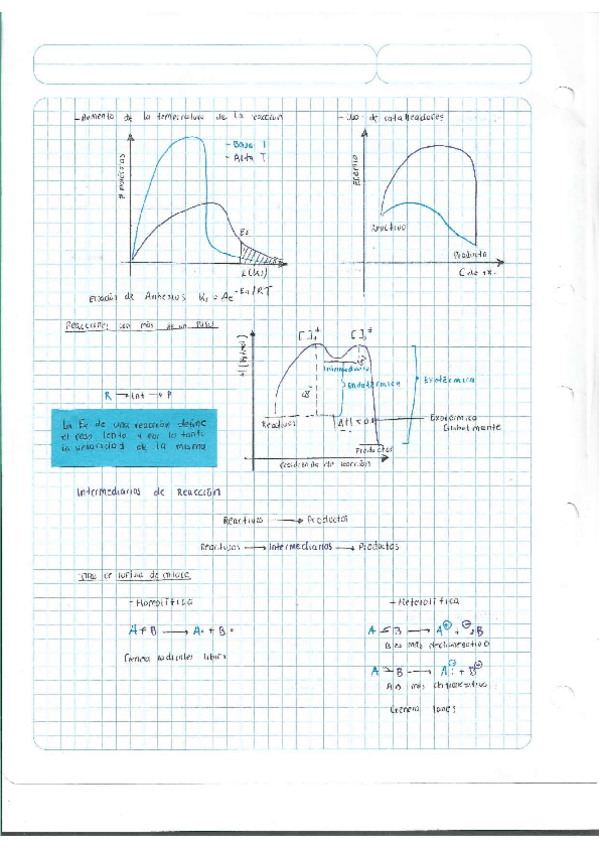 - Aumento de la temperatura de la reacción
- Uso de catalizadores
- Baja T
- Alta T
# moléculas
Ea
Reactivo
Producto
C de rx.
Ecuación de Arrhenius K₁ = Ae^-Ea/RT
Reacciones con más de un paso
[ ]₁‡ [ ]₂‡
Intermediario
Endotérmica
Exotérmica
R → Int → P
La Ea de una reacción define
el paso lento y por lo tanto
la velocidad de la misma
Reactivos
ΔH < 0
Exotérmica
Globalmente
Productos
Intermediarios de Reacción
Reactivos → Productos
Reactivos → Intermediarios → Productos
Tipos de ruptura de enlace
- Homolítica
- Heterolítica
A + B → A• + B•
Genera radicales libres
B es más electronegativo
A es más electronegativo
Genera Iones